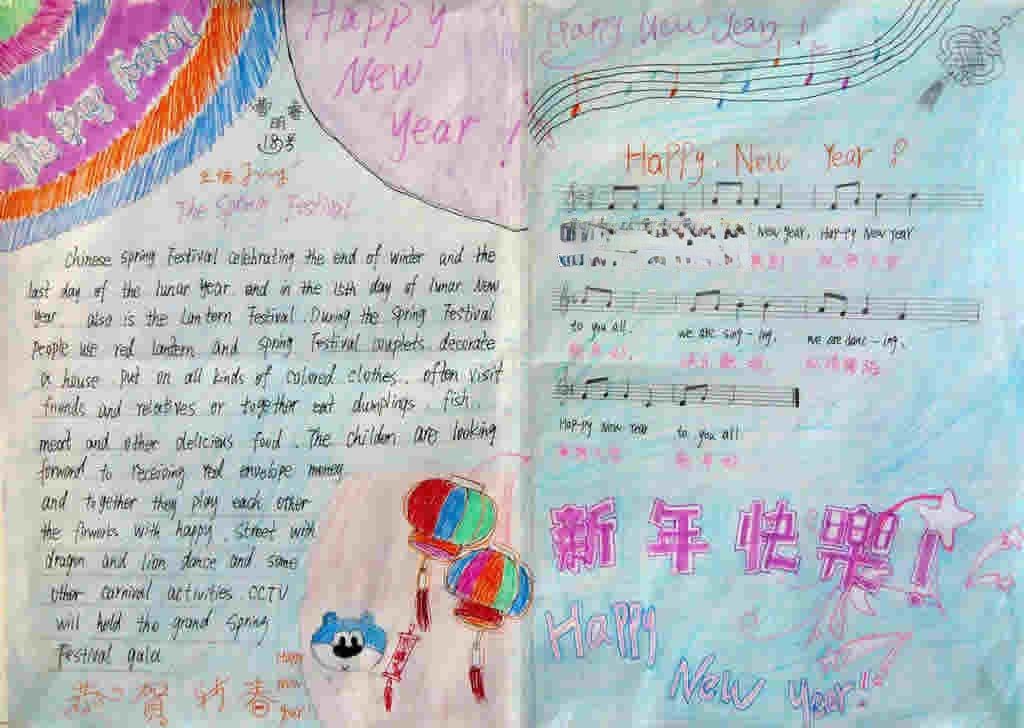 the spring festival
Happy
New
year !
The Spring Festival
Chinese spring Festival celebrating the end of winter and the
last day of the lunar year. and in the 15th day of lunar New
Year also is the Lantern Festival. During the Spring Festival
People use red lantern and spring Festival couplets decorate
a house put on all kinds of colored clothes. often visit
friends and relatives or together eat dumplings. fish.
meat and other delicious food. The children are looking
forward to receiving red envelope money
and together they play each other
the firworks with happy. street with
dragon and lion dance and some
other carnival activities. CCTV
will hold the grand spring
Festival gala
恭賀新春
Happy
new
year!
Happy New Year !
Happy New Year !
New year, Hap-py New Year
to you all. we are sing-ing, we are danc-ing,
Hap-py New Year to you all.
新年快樂!
Happy
New Year!!